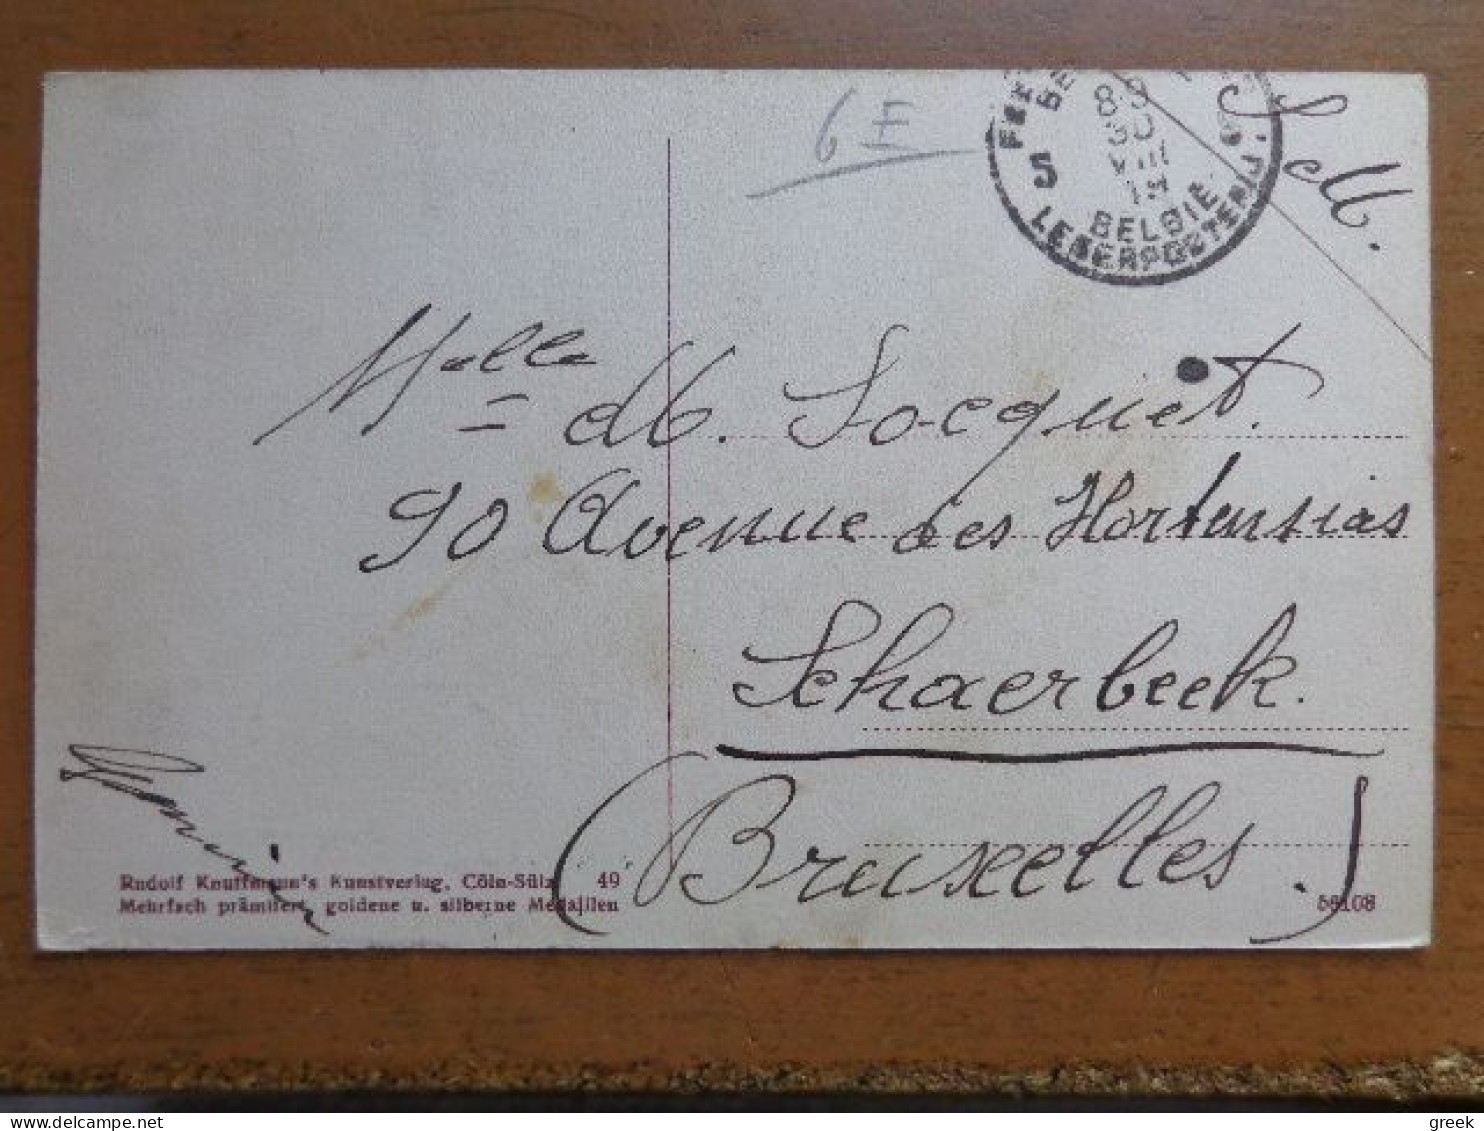 6 F
8-9
30
VIII
19
5
BELGIE
LEGERPOSTERIJ
S.M.
Melle M. Socquet.
90 Avenue des Hortensias
Schaerbeek.
(Bruxelles.)
Rudolf Knuffmann's Kunstverlag, Cöln-Sülz 49
Mehrfach prämiiert, goldene u. silberne Medajllen
delcampe.net
greek